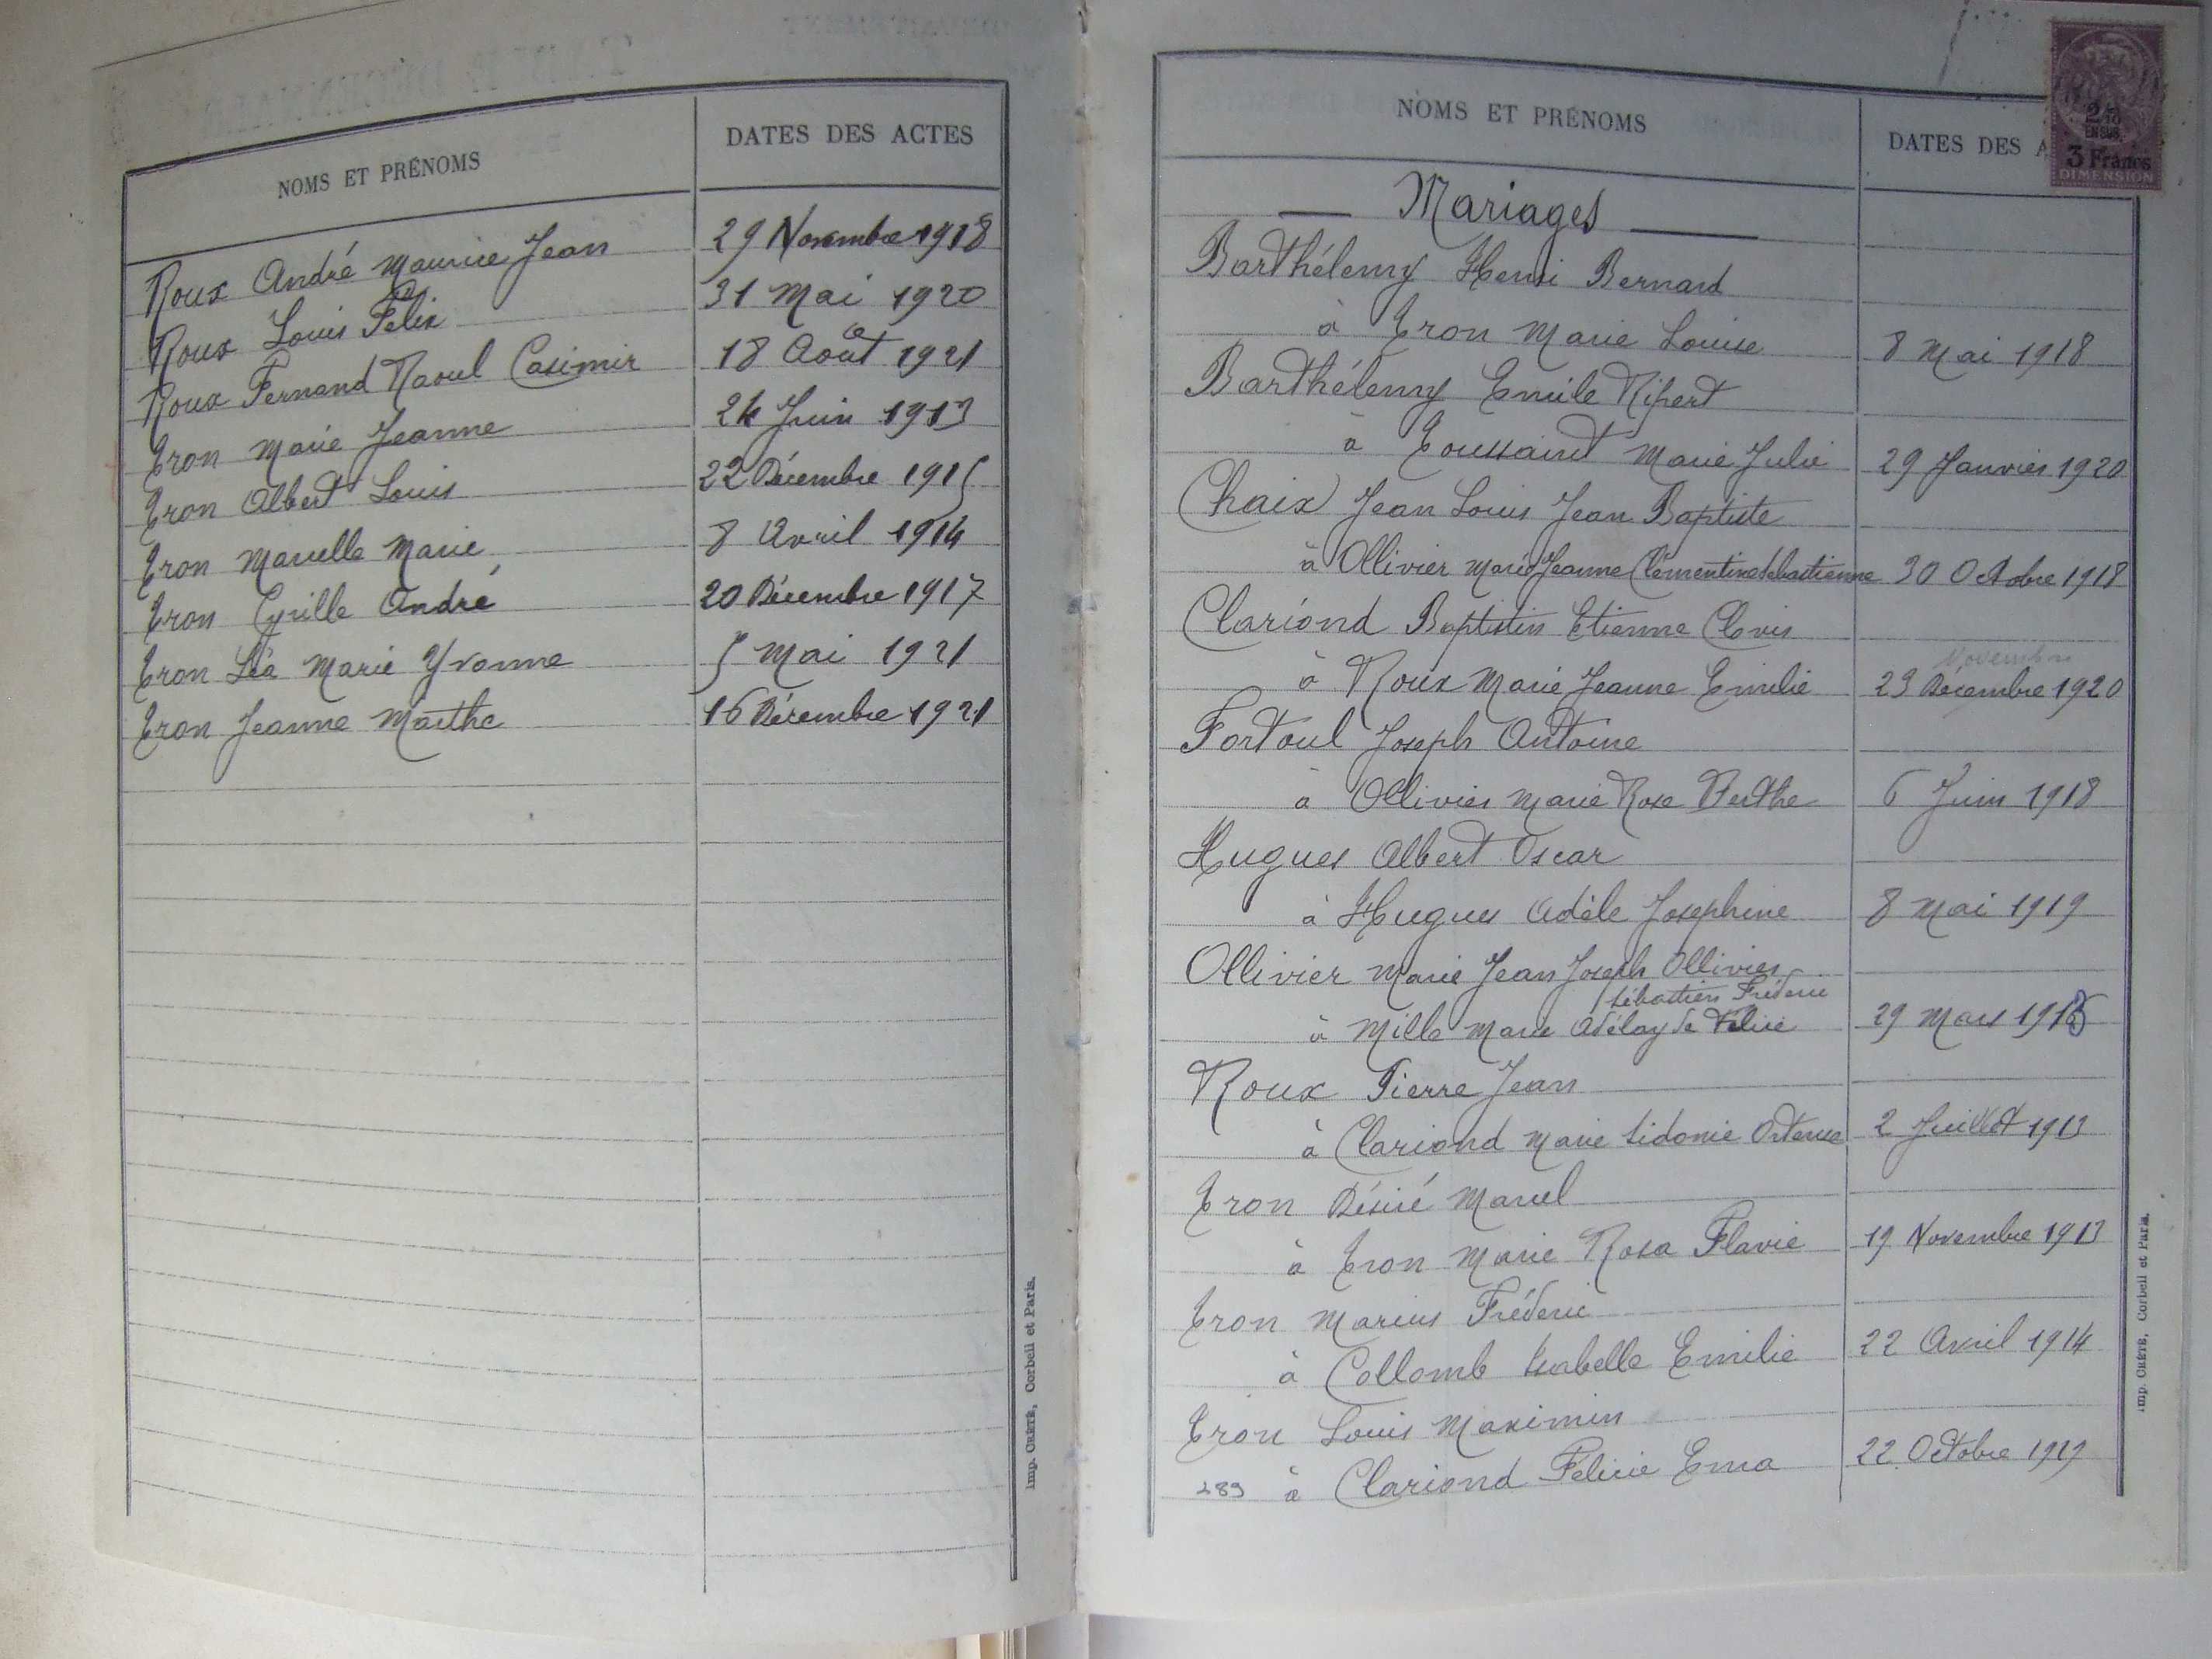 NOMS ET PRÉNOMS
DATES DES ACTES
Roux André Maurice Jean 29 Novembre 1918
Roux Louis Félix 31 Mai 1920
Roux Fernand Raoul Casimir 18 Août 1921
Tron Marie Jeanne 24 Juin 1913
Tron Albert Louis 22 Décembre 1915
Tron Marcelle Marie 8 Avril 1914
Tron Cyrille André 20 Décembre 1917
Tron Léa Marie Yvonne 5 Mai 1921
Tron Jeanne Marthe 16 Décembre 1921
Imp. CRÉTÉ, Corbeil et Paris.
NOMS ET PRÉNOMS
DATES DES A
EN SUS
3 Francs
DIMENSION
Mariages
Barthélemy Henri Bernard
à Tron Marie Louise 8 Mai 1918
Barthélemy Emile Ripert
à Toussaint Marie Julie 29 Janvier 1920
Chaix Jean Louis Jean Baptiste
à Ollivier Marie Jeanne Clémentine Sébastienne 30 Octobre 1918
Clariond Baptistin Etienne Clovis
Novembre
à Roux Marie Jeanne Emilie 23 Décembre 1920
Fortoul Joseph Antoine
à Ollivier Marie Rose Berthe 6 Juin 1918
Hugues Albert Oscar
à Hugues Adèle Josephine 8 Mai 1919
Ollivier Marie Jean Joseph Ollivier
Sébastien Fréderic
à Mille Marie Adélayde Félicie 29 Mars
Roux Pierre Jean
à Clariond Marie Sidonie Ortence 2 Juillet 1913
Tron Désiré Marcel
à Tron Marie Rosa Flavie 19 Novembre 1913
Tron Marius Fréderic
à Collomb Isabelle Emilie 22 Avril 1914
Tron Louis Maximin
289 à Clariond Félicie Ema 22 Octobre 1919
Imp. CRÉTÉ, Corbeil et Paris.